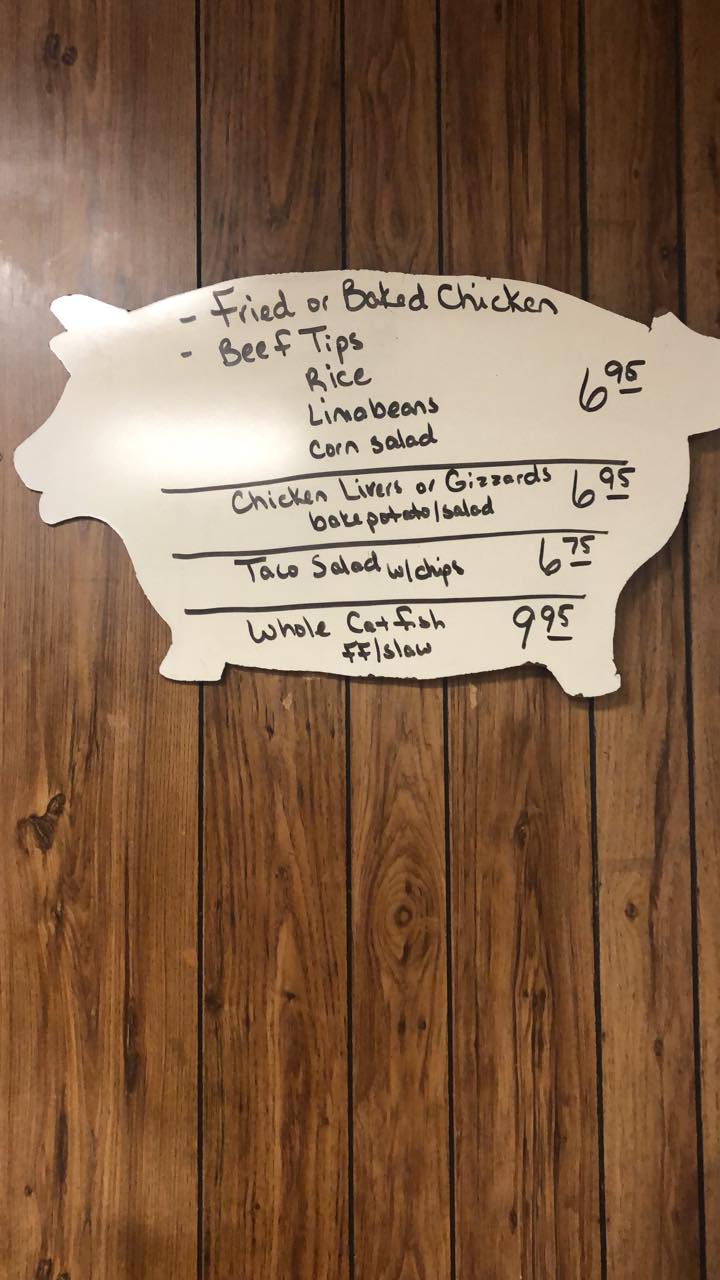 - Fried or Baked Chicken
- Beef Tips
Rice
Limabeans
Corn salad
6 95
Chicken Livers or Gizzards 6 95
bakepotato/salad
Taco Salad w/chips 6 75
Whole Catfish 9 95
FF/slaw